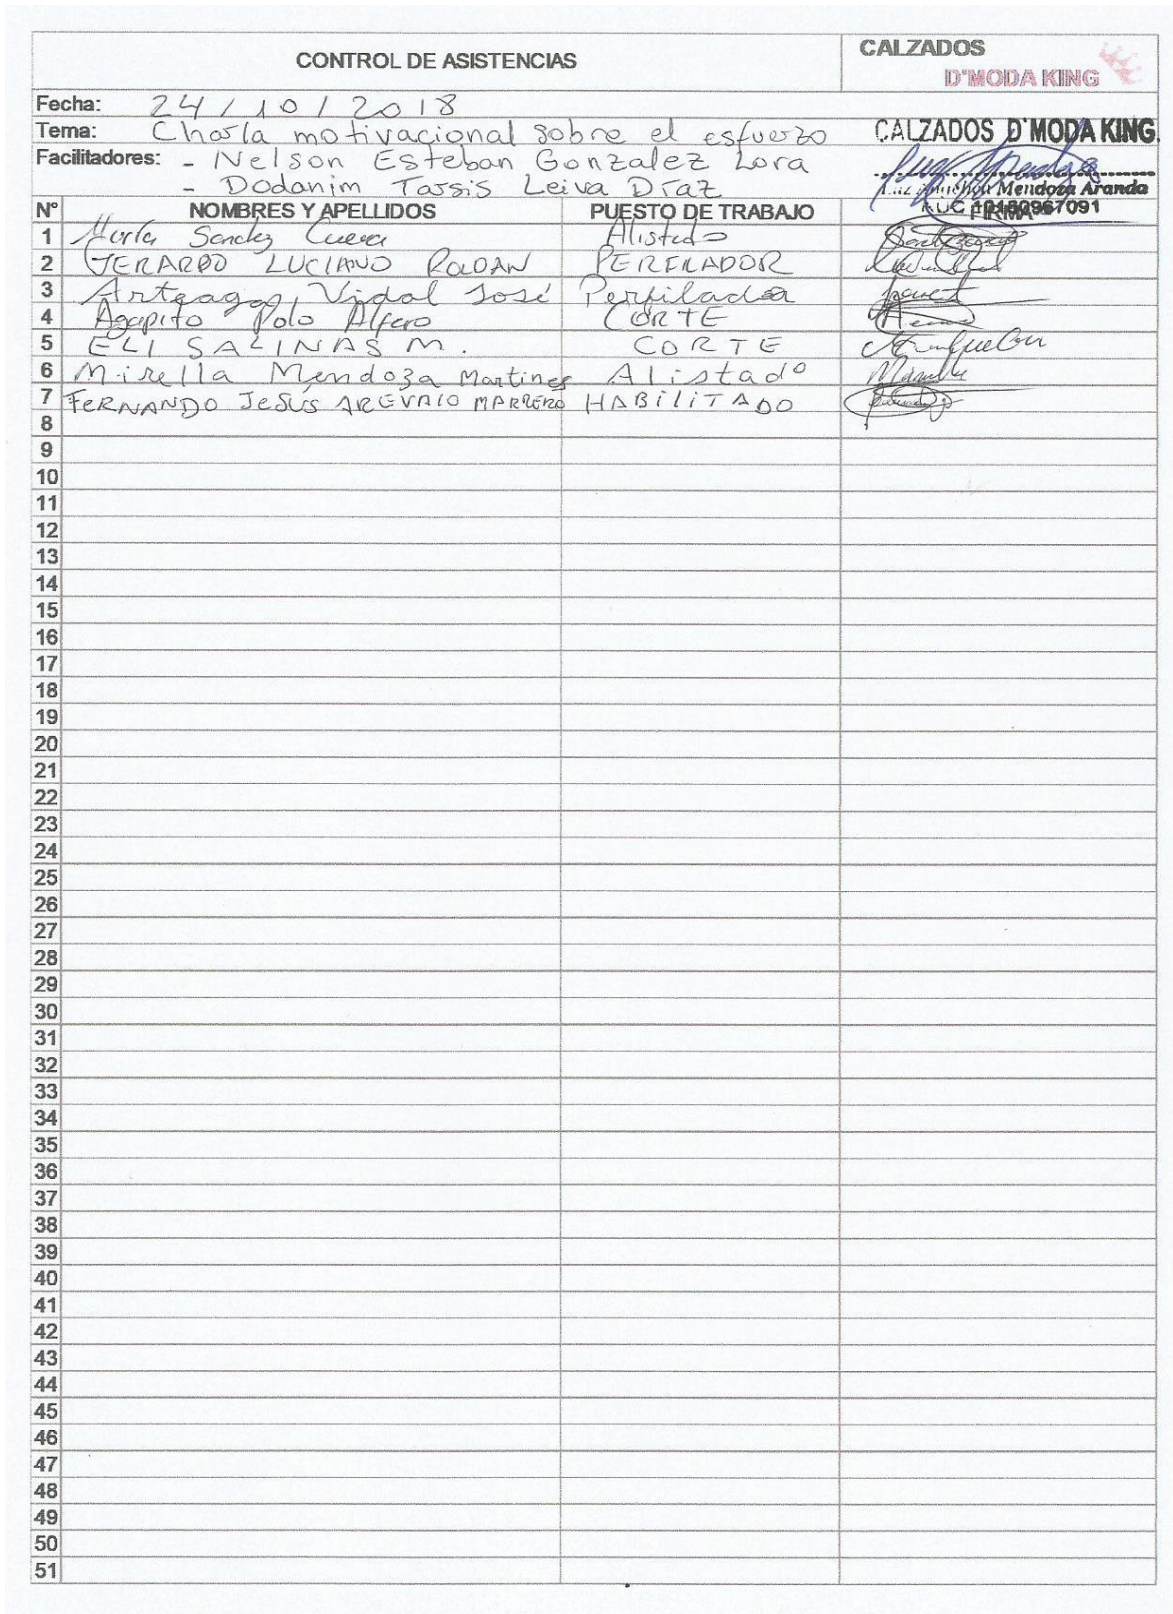 CONTROL DE ASISTENCIAS
CALZADOS
D'MODA KING
Fecha: 24/10/2018
Tema: Charla motivacional sobre el esfuerzo
CALZADOS D'MODA KING.
Facilitadores: - Nelson Esteban Gonzalez Lora
- Dodanim Tassis Leiva Díaz
Mendoza Aranda
RUC 10180967091
N° NOMBRES Y APELLIDOS PUESTO DE TRABAJO FIRMA
1 María Sanchez Cueva Alistado
2 GERARDO LUCIANO ROLDAN PERFILADOR
3 Arteaga, Vidal José Perfilador
4 Agapito Polo Alfaro CORTE
5 ELI SALINAS M. CORTE
6 Mirella Mendoza Martines Alistado
7 FERNANDO JESÚS AREVALO MARRERO HABILITADO
8
9
10
11
12
13
14
15
16
17
18
19
20
21
22
23
24
25
26
27
28
29
30
31
32
33
34
35
36
37
38
39
40
41
42
43
44
45
46
47
48
49
50
51